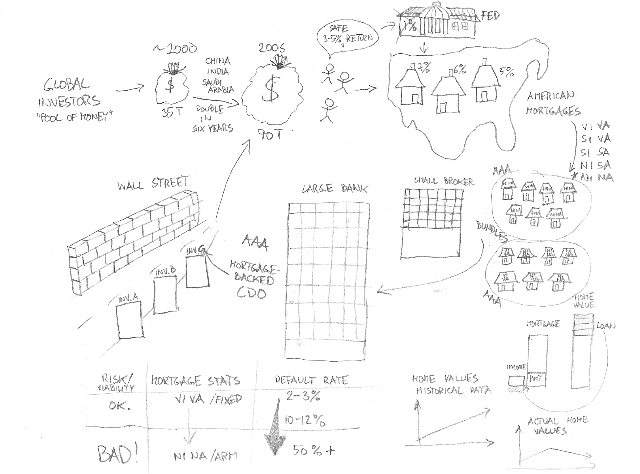 ~2000
CHINA
INDIA
SAUDI
ARABIA
2006
SAFE
3-5% RETURN
1%
FED
GLOBAL
INVESTORS
"POOL OF MONEY"
$
35T
DOUBLE
IN
SIX YEARS
$
70T
6%
5%
AMERICAN
MORTGAGES
VI VA
SI VA
SI SA
NI SA
NI NA
WALL STREET
LARGE BANK
SMALL BROKER
AAA
BUNDLES
AAA
INV. A
INV. B
INV. C
AAA
MORTGAGE-
BACKED
CDO
HOME
VALUE
MORTGAGE
LOAN
INCOME
RISK/
VIABILITY
MORTGAGE STATS
DEFAULT RATE
OK.
VIVA/FIXED
2-3%
10-12%
BAD!
NINA/ARM
50%+
HOME VALUES
HISTORICAL DATA
ACTUAL HOME
VALUES